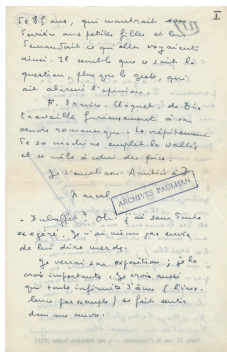 I
de 85 ans, qui montrait son
derrière aux petites filles et leur
demandait ce qu'elles voyaient
ainsi. Il semble que ce soit la
question, plus que le geste, qui
ait alarmé l'opinion.
travaille furieusement à son
œuvre romanesque. Le crépitement
de sa machine emplit la vallée
et se mêle à celui des pives.
Je Amitiés à
Marcel
ARCHIVES PAULHAN
Dubuffet ? Oh ! j'ai sans doute
exagéré. Je n'ai même pas envie
de lui dire merde.
Je verrai son exposition ; je la
crois importante. Je crois aussi
que toute infirmité d'âme (l'ivro-
par exemple) se fait sentir
dans une œuvre.